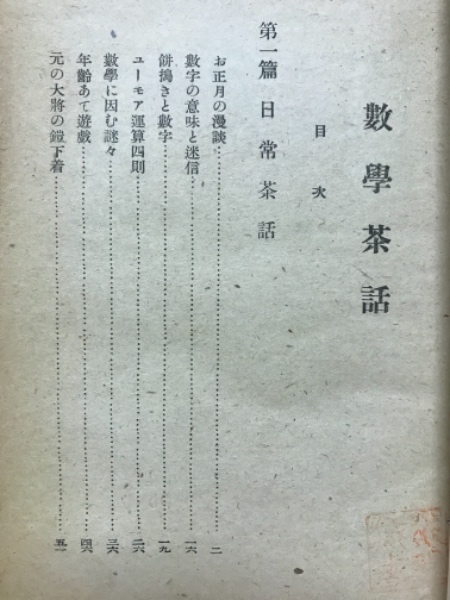 數學茶話
目次
第一篇 日常茶話
お正月の漫談……………二
數字の意味と迷信……………一六
餠搗きと數字……………一九
ユーモア運算四則……………二六
數學に因む謎々……………三六
年齡あて遊戲……………四六
元の大將の鎧下着……………五一